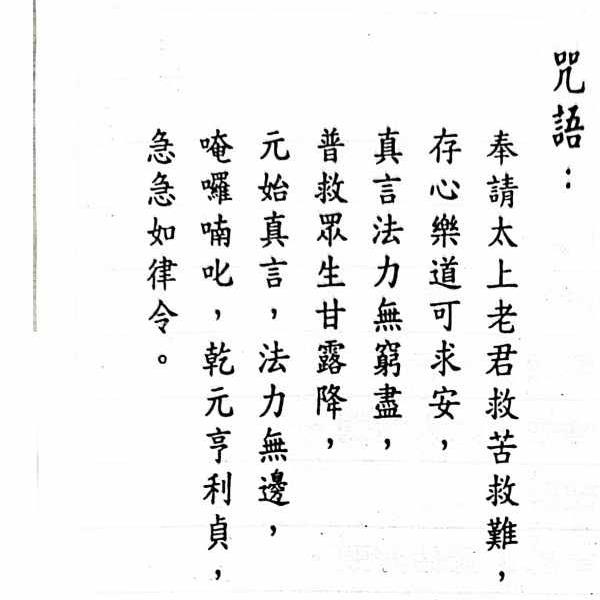 咒語：
奉請太上老君救苦救難，
存心樂道可求安，
真言法力無窮盡，
普救眾生甘露降，
元始真言，法力無邊，
唵囉喃叱，乾元亨利貞，
急急如律令。